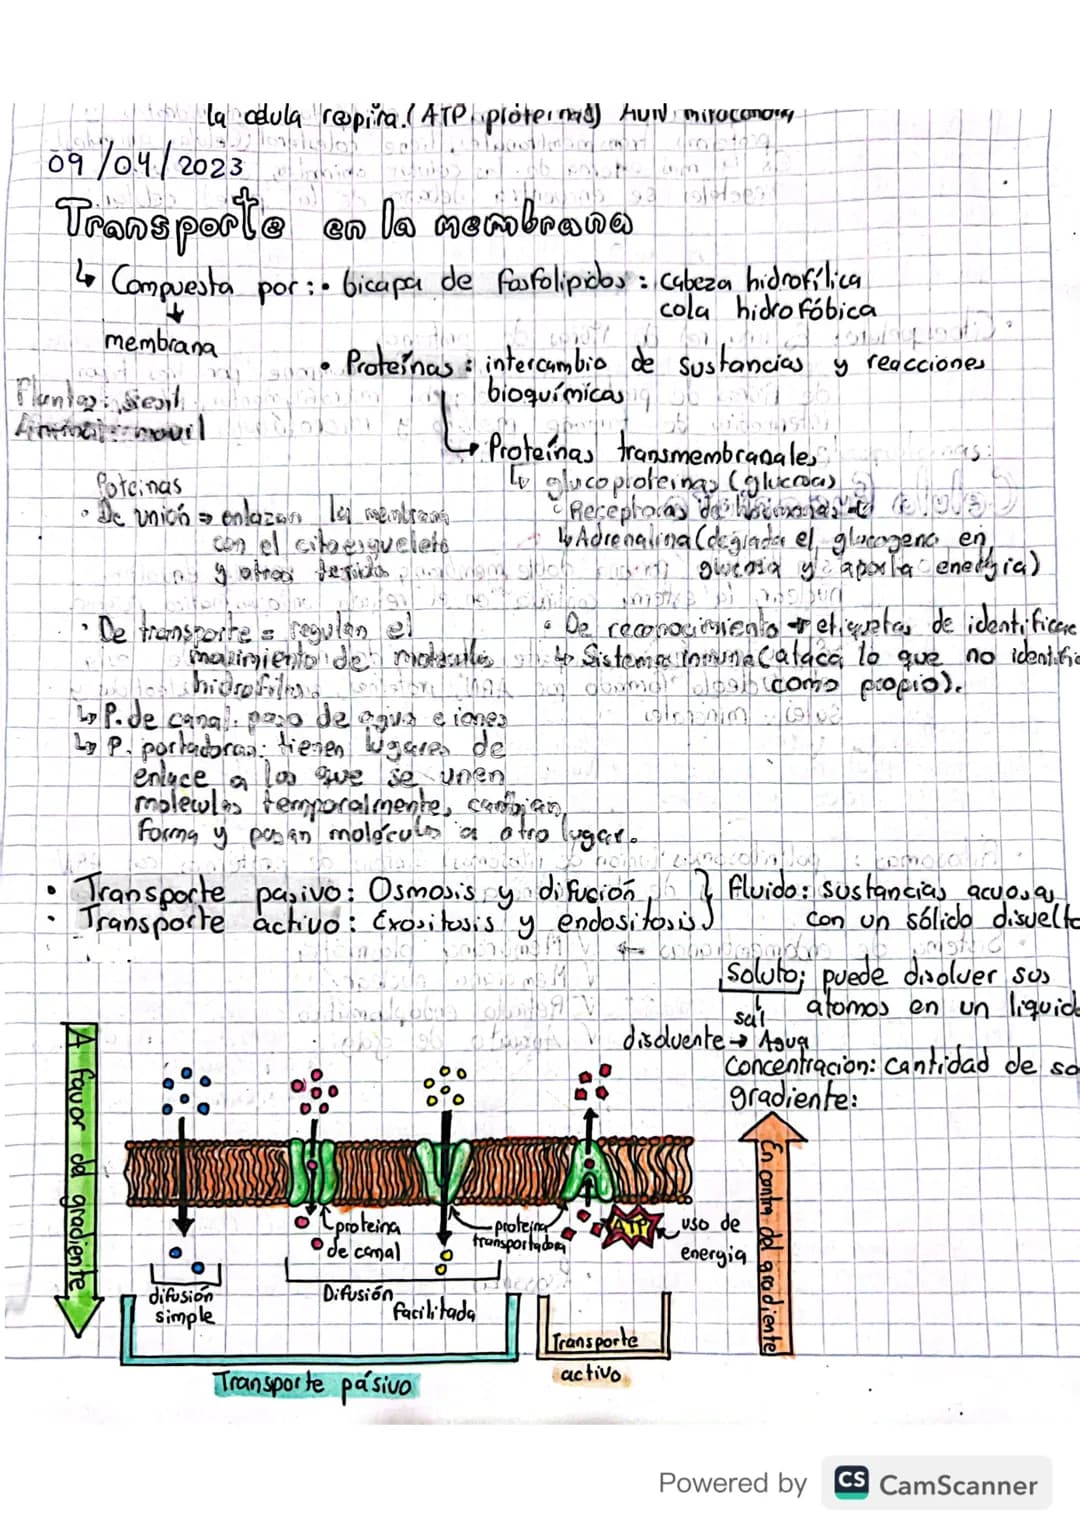 la celula respira. (ATP proteinas)
09/04/2023
Transporte en la membrana
↳ Compuesta por: • bicapa de fosfolipidos: cabeza hidrofílica
cola hidrofóbica
membrana
• Proteínas: intercambio de sustancias y reacciones
bioquímicas
↳ Proteínas transmembranales
↳ glucoproteinas (glucosa)
Receptoras de hormonas
↳ Adrenalina (degrada el glucogeno en
glucosa y aporta energia)
Poteinas
• De unión → enlazan la membrana
con el citoesqueleto
y otros tejidos
• De transporte = regulan el
de moleculas
• De reconocimiento → etiquetas de identificac
↳ Sistema inmune (ataca lo que no identific
como propio).
↳ P. de canal: paso de agua e iones
↳ P. portadoras: tienen lugares de
enlace a los que se unen
moleculas temporalmente, cambian
forma y pasan moléculas a otro lugar.
• Transporte pasivo: Osmosis y difución
• Transporte activo: Exositosis y endositosis
fluido: sustancias acuosas
con un sólido disuelto
Soluto; puede disolver sus
atomos en un liquido
sal
disolvente → Agua
Concentracion: cantidad de so
gradiente:
A favor del gradiente
En contra del gradiente
proteina
de canal
proteina
transportadora
ATP
uso de
energia
difusión
simple
Difusión
facilitada
Transporte
activo
Transporte pásivo
Powered by CS CamScanner